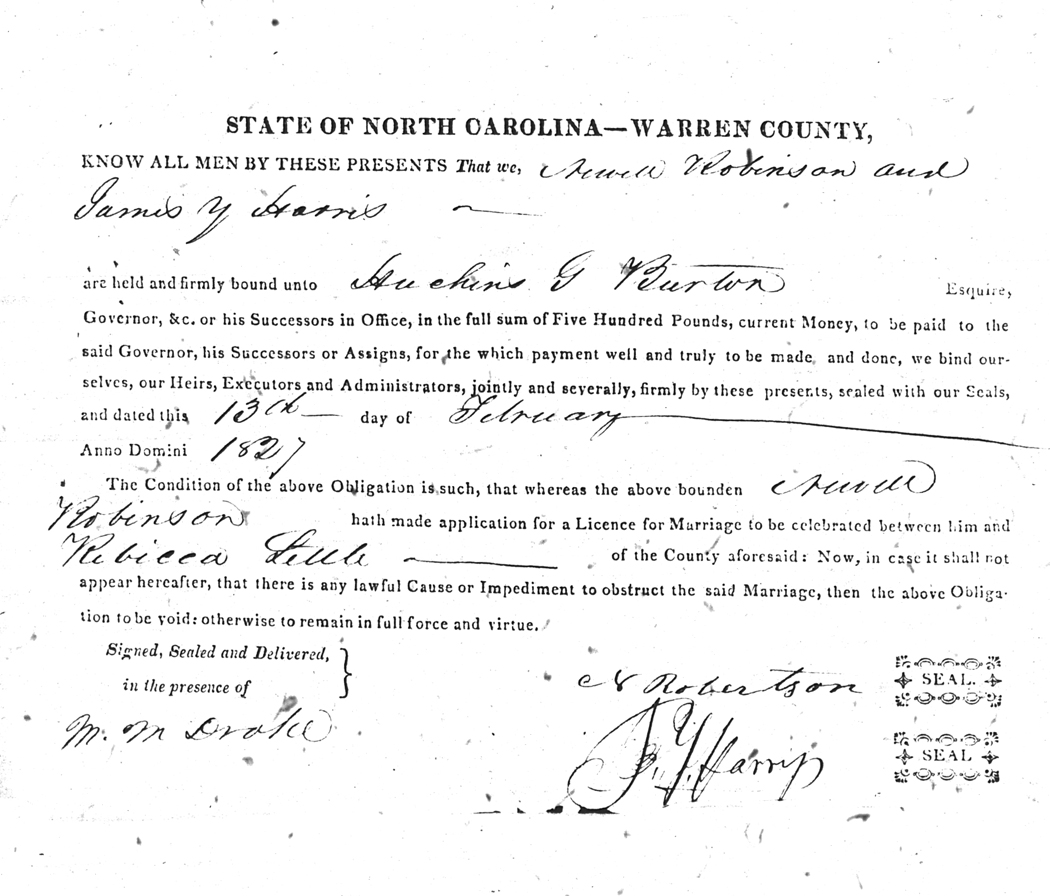 STATE OF NORTH CAROLINA—WARREN COUNTY,
KNOW ALL MEN BY THESE PRESENTS That we, Newell Robinson and
James Y Harris
are held and firmly bound unto Huchins G Burton Esquire,
Governor, &c. or his Successors in Office, in the full sum of Five Hundred Pounds, current Money, to be paid to the
said Governor, his Successors or Assigns, for the which payment well and truly to be made, and done, we bind our-
selves, our Heirs, Executors and Administrators, jointly and severally, firmly by these presents, sealed with our Seals,
and dated this 13th day of February
Anno Domini 1827
The Condition of the above Obligation is such, that whereas the above bounden Newell
Robinson hath made application for a Licence for Marriage to be celebrated between him and
Rebicca Little of the County aforesaid: Now, in case it shall not
appear hereafter, that there is any lawful Cause or Impediment to obstruct the said Marriage, then the above Obliga-
tion to be void: otherwise to remain in full force and virtue.
Signed, Sealed and Delivered,
in the presence of
M. M Drake
N Robertson SEAL.
J. Y. Harris SEAL